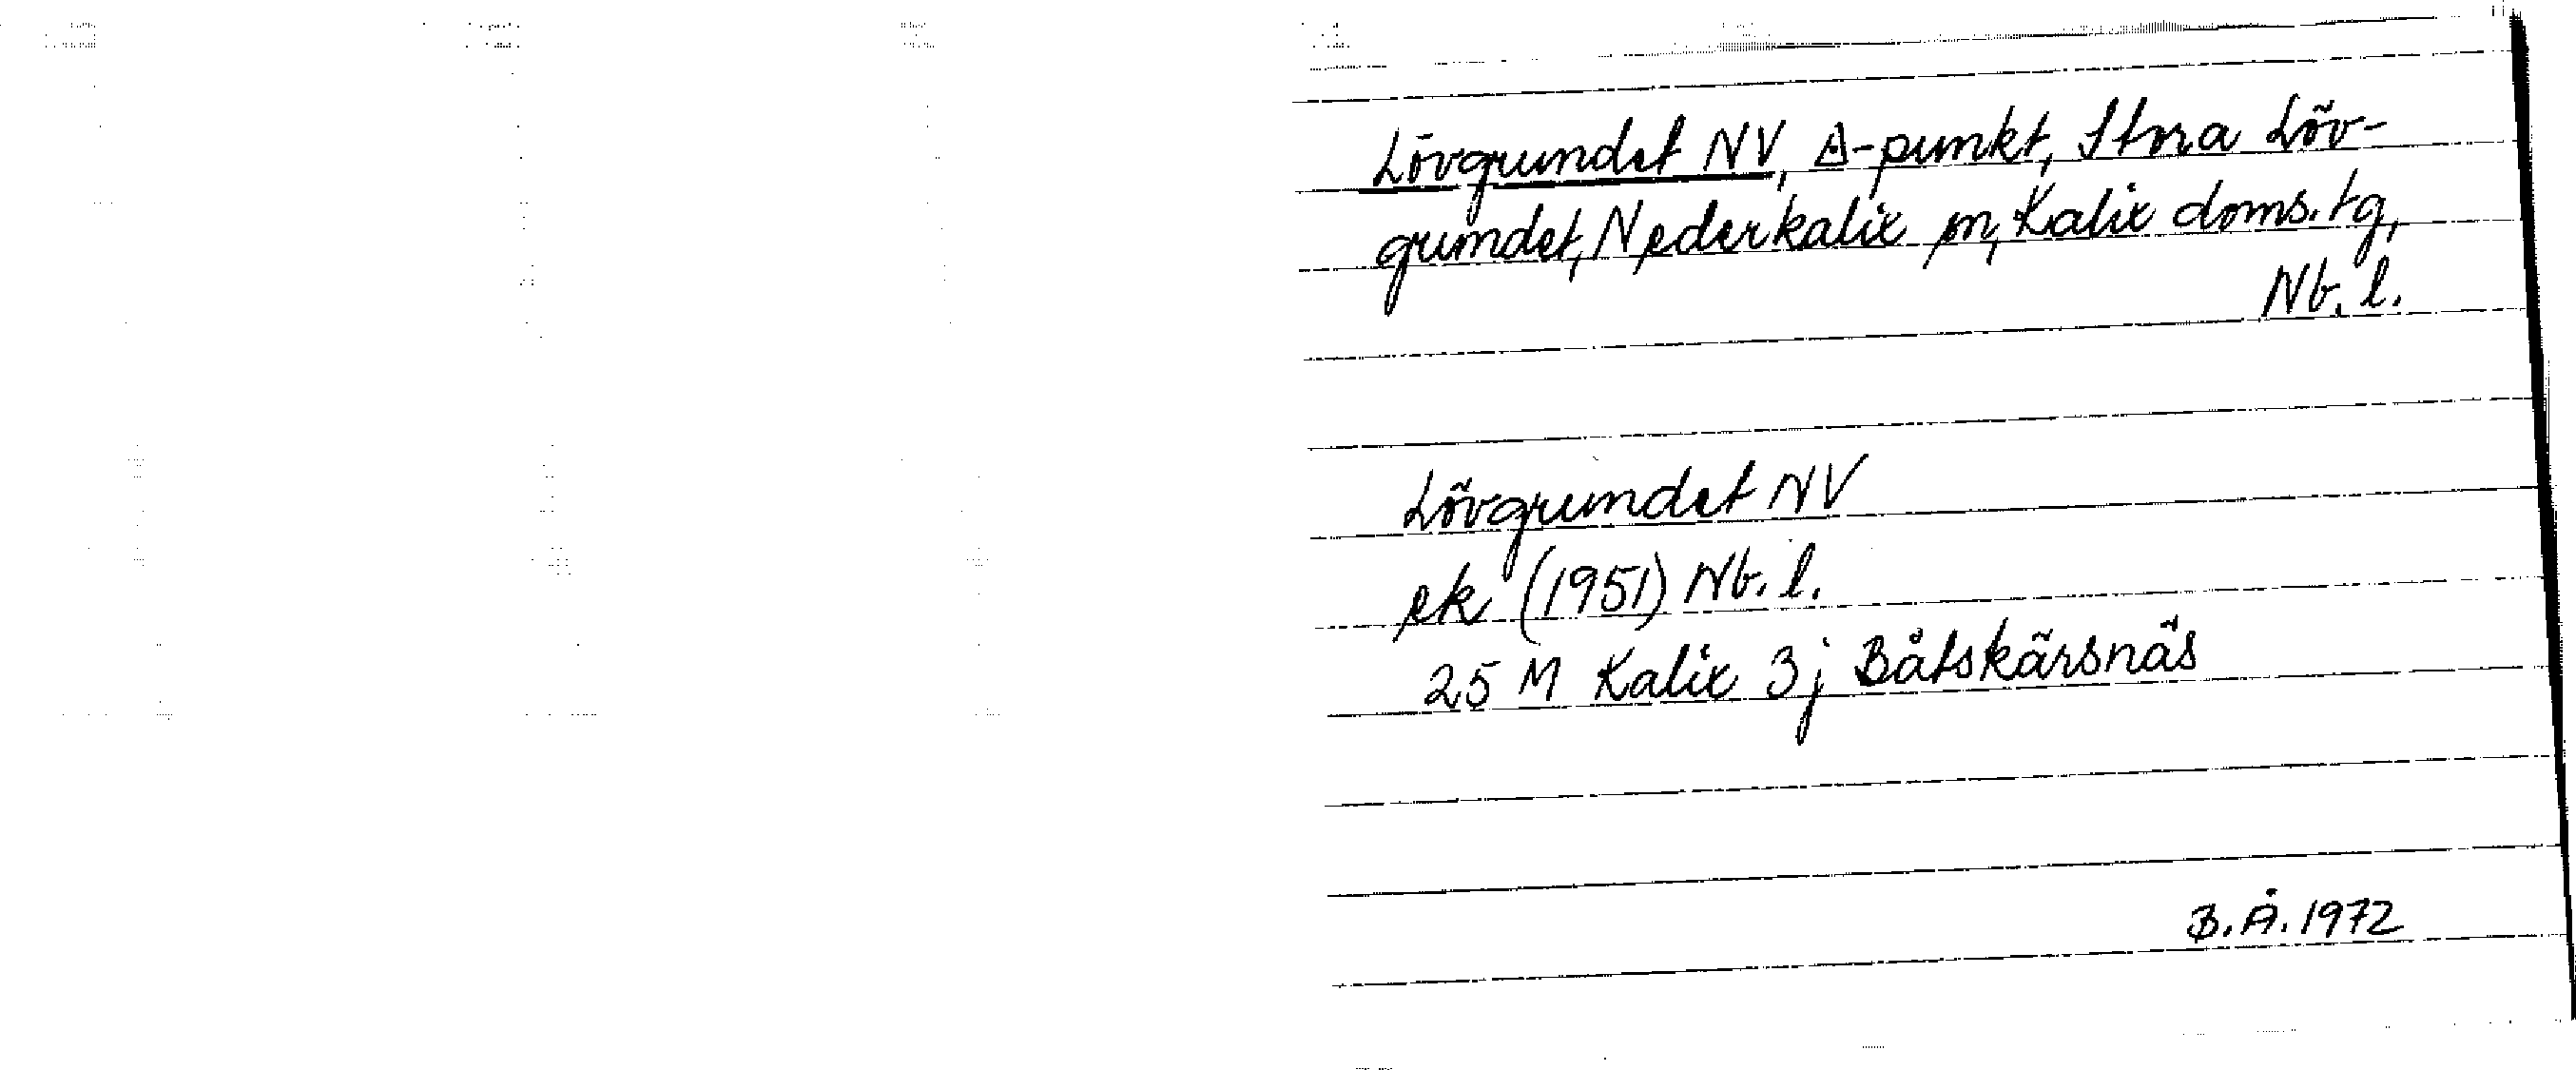 Lövgrundet NV, Δ-punkt, Stora Löv-
grundet, Nederkalix sn, Kalix doms. tg,
Nb. l.
Lövgrundet NV
ek (1951) Nb. l.
25 M Kalix 3j Båtskärsnäs
B.Å. 1972